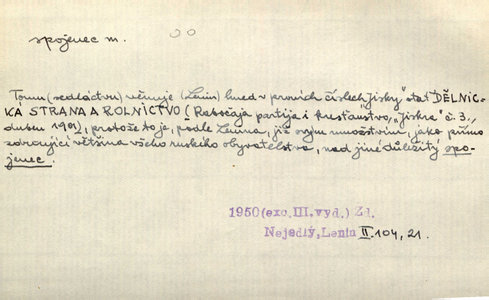 spojenec m.
Tomu (sedláctvu) věnuje (Lenin) hned v prvních číslech "Jiskry" stať DĚLNIC-
KÁ STRANA A ROLNICTVO (Rabočaja partija i krest'anstvo, "Jiskra" č. 3.,
dubna 1901), protože to je, podle Lenina, již svým množstvím, jako přímo
zdrcující většina všeho ruského obyvatelstva, nad jiné důležitý spo-
jenec.
1950(exc.III.vyd.) Zd.
Nejedlý,Lenin II.104,21.